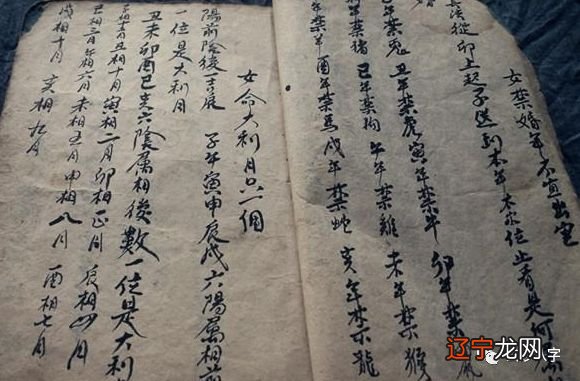 女禁婚年不宜出宅
法從卯上起子迭到本年本家位止看是何屬
年禁兔 丑年禁虎 寅年禁牛 卯年禁鼠
年禁猪 巳年禁狗 午年禁雞 未年禁猴
年禁羊 酉年禁馬 戌年禁蛇 亥年禁龍
女命大利月只一個
陽前陰後一言展 子午寅申辰戌六陽屬相前
一位是大利月
丑未卯酉巳亥六陰屬相後數一位是大利
丑相十月寅相二月卯相正月 辰相四月
巳相三月午相六月未相五月申相八月 酉相七月
戌相十月 亥相九月
辽宁龙网
八字